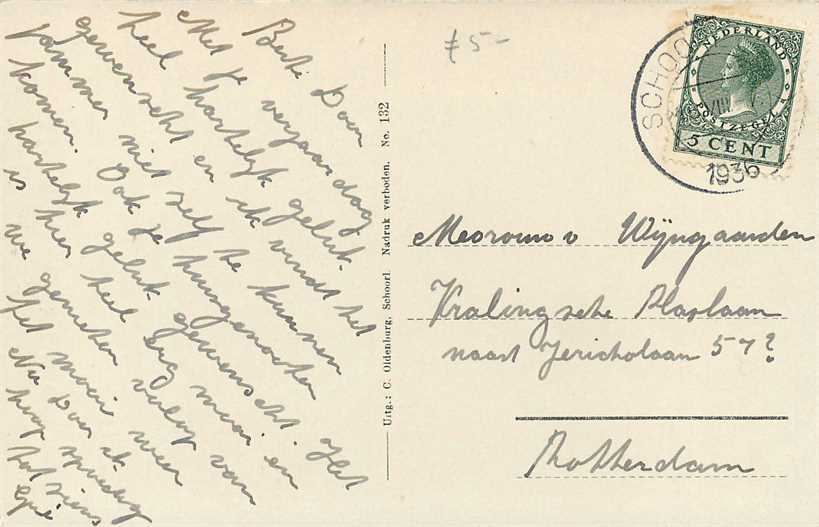 Beste Door
Met je verjaardag
heel hartelijk geluk
gewenscht en ik vindt het
jammer niet zelf te kunnen
komen. Ook je huisgenooten
hartelijk geluk gewenscht. Het
is hier heel erg mooi en
we genieten volop van
het mooi weer
Nu Door ik
hoop spoedig
tot ziens
Uitg.: C. Oldenburg, Schoorl. Nadruk verboden. No. 132
£ 5-
SCHOO
VIII
1936
NEDERLAND
POSTZEGEL
5 CENT
Mevrouw v Wijngaarden
Kralingsche Plaslaan
naast Jericholaan 57?
Rotterdam